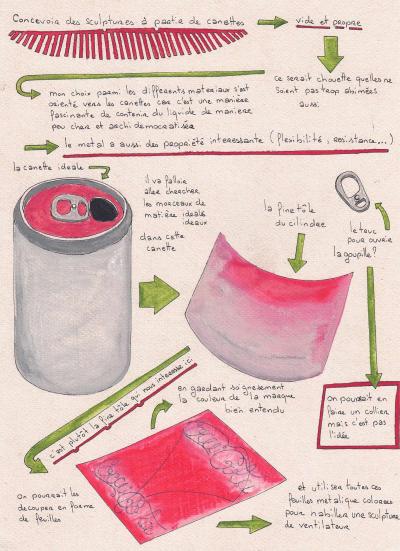 Concevoir des sculptures à partie de canettes
vide et propre
ce serait chouette quelles ne
soient pas trop abimées
aussi
mon choix parmi les différents materiaux s'est
orienté vers les canettes car c'est une manière
fascinante de contenir du liquide de manière
peu cher et archi démocratisée
le metal a aussi des propriété interessante (flexibilité, resistance...)
la canette ideale
il va falloir
aller chercher
les morceaux de
matière ideals
ideaux
dans cette
canette
la fine tôle
du cilindre
le truc
pour ouvrir
la goupille?
c'est plutôt la fine tôle qui nous interesse ici
en gardant soignesement
la couleur de la marque
bien entendu
On pourrait en
faire un collier
mais c'est pas
l'idée
Coca-Cola
Coca-Cola
On pourrait les
decouper en forme
de feuilles
et utiliser toutes ces
feuilles métalique colorées
pour habiller une sculpture
de ventilateur